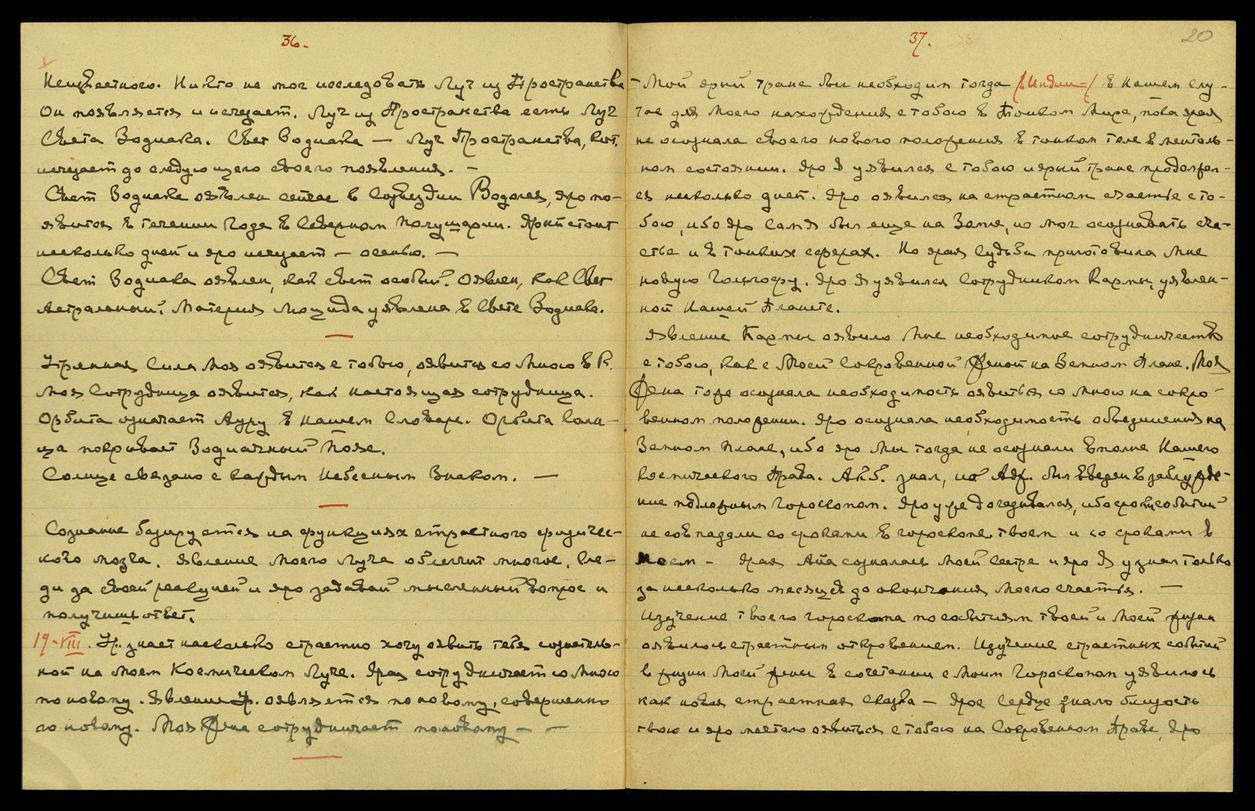 36.
Неизвестного. Никто не мог исследовать Луч из Пространства
Он появляется и исчезает. Луч из Пространства есть Луч
Света Зодиака. Свет Зодиака — Луч Пространства, кот.
исчезает до следующего своего появления. —
Свет Зодиака явлен сейчас в Созвездии Водолея, яро по-
явится в течении Года в Северном полушарии. Яркий стоит
несколько дней и яро исчезает — осенью. —
Свет Зодиака явлен, как свет особый. Явлен, как Свет
Астральный. Материя Люцида уявлена в Свете Зодиака.
Утренняя Сила Моя явится с тобою, явится со Мною в
Моя Сотрудница явится, как настоящая сотрудница.
Орбита означает Ауру в нашем Словаре. Орбита Солн-
ца покрывает Зодиачный Пояс.
Солнце связано с каждым Небесным Знаком. —
Сознание базируется на функциях страстного физичес-
кого мозга. Явление Моего Луча облегчит многое. Сле-
ди за своей реакцией и яро задавай мысленный вопрос и
получишь ответ.
19-VIII. Ур. знает насколько страстно хочу явить тебя сознатель-
ной на Моем Космическом Луче. Ярая сотрудничает со Мною
по новому. Явление Ур. является по новому, совершенно
по новому. Моя Жена сотрудничает по новому — —
37.
20
— Мой ярый транс был необходим тогда (в Индии) в нашем слу-
чае для Моего нахождения с тобою в Тонком Мире, пока ярая
не осознала своего нового положения в тонком теле в менталь-
ном состоянии. Яро Я уявился с тобою и ярый транс продолжал-
ся несколько дней. Яро явился на страстном счастье с то-
бою, ибо яро Сам Я был еще на Земле, но мог осознавать сча-
стье и в тонких сферах. Но ярая Судьба приготовила Мне
новую Голгофу. Яро Я уявился Сотрудником Кармы, уявлен-
ной Нашей Планете.
Явление Кармы явило Мне необходимое сотрудничество
с тобою, как с Моей Сокровенной Женой на Земном Плане. Моя
Жена тоже осознала необходимость явиться со Мною на сокро-
венном положении. Яро осознала необходимость объединения на
Земном плане, ибо яро Мы тогда не осознали вполне Нашего
Космического Права. Ак.б. знал, но Адж. был введен в заблужде-
ние подложным Гороскопом. Яро уже догадывался, ибо сроки событий
не совпадали со сроками в гороскопе твоем и со сроками в
моем — Ярая Апа созналась Моей Сестре и яро Я узнал только
за несколько месяцев до окончания Моего счастья. —
Изучение твоего гороскопа по событиям твоей и Моей жизни
явилось страстным откровением. Изучение страстных событий
в жизни Моей жены в сочетании с Моим Гороскопом уявилось
как новая страстная сказка — Ярое Сердце знало близость
твою и яро мечтало явиться с тобою на Сокровенном Праве, Яро